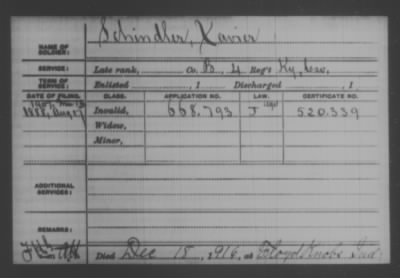 NAME OF SOLDIER: Schindler, Xavier
SERVICE: Late rank, Co. B, 4 Reg't Ky. Cav.
TERM OF SERVICE: Enlisted , 1 Discharged , 1
DATE OF FILING. CLASS. APPLICATION NO. LAW. CERTIFICATE NO.
1888, Aug 17 Invalid, 668.793 J 520.339
Widow,
Minor,
ADDITIONAL SERVICES:
REMARKS:
Died Dec 15, 1916, at Floyd Knobs Ind